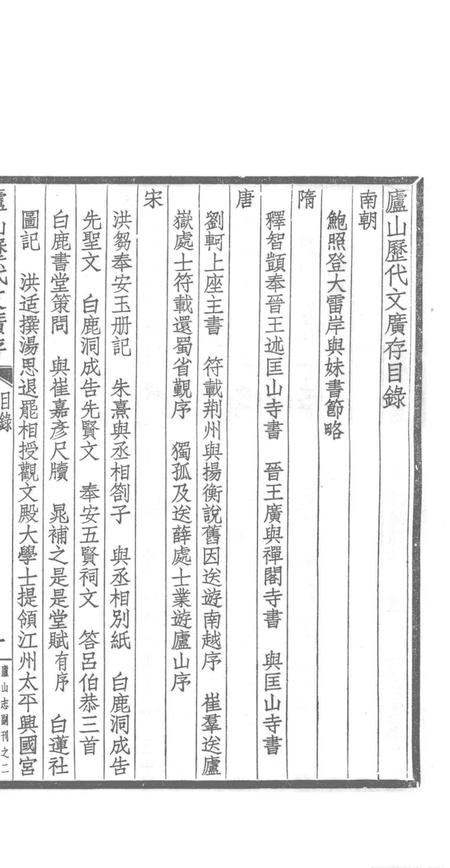 廬山歷代文廣存目錄
南朝
鮑照登大雷岸與妹書節略
隋
釋智顗奉晉王述匡山寺書　晉王廣與禪閣寺書　與匡山寺書
唐
劉軻上座主書　符載荆州與揚衡說舊因送遊南越序　崔羣送廬
嶽處士符載還蜀省覲序　獨孤及送薛處士業遊廬山序
宋
洪芻奉安玉册記　朱熹與丞相劄子　與丞相別紙　白鹿洞成告
先聖文　白鹿洞成告先賢文　奉安五賢祠文　答呂伯恭三首
白鹿書堂策問　與崔嘉彥尺牘　晁補之是是堂賦有序　白蓮社
圖記　洪适撰湯思退罷相授觀文殿大學士提領江州太平興國宮
廬山歷代文廣存　目錄
廬山志副刊之二